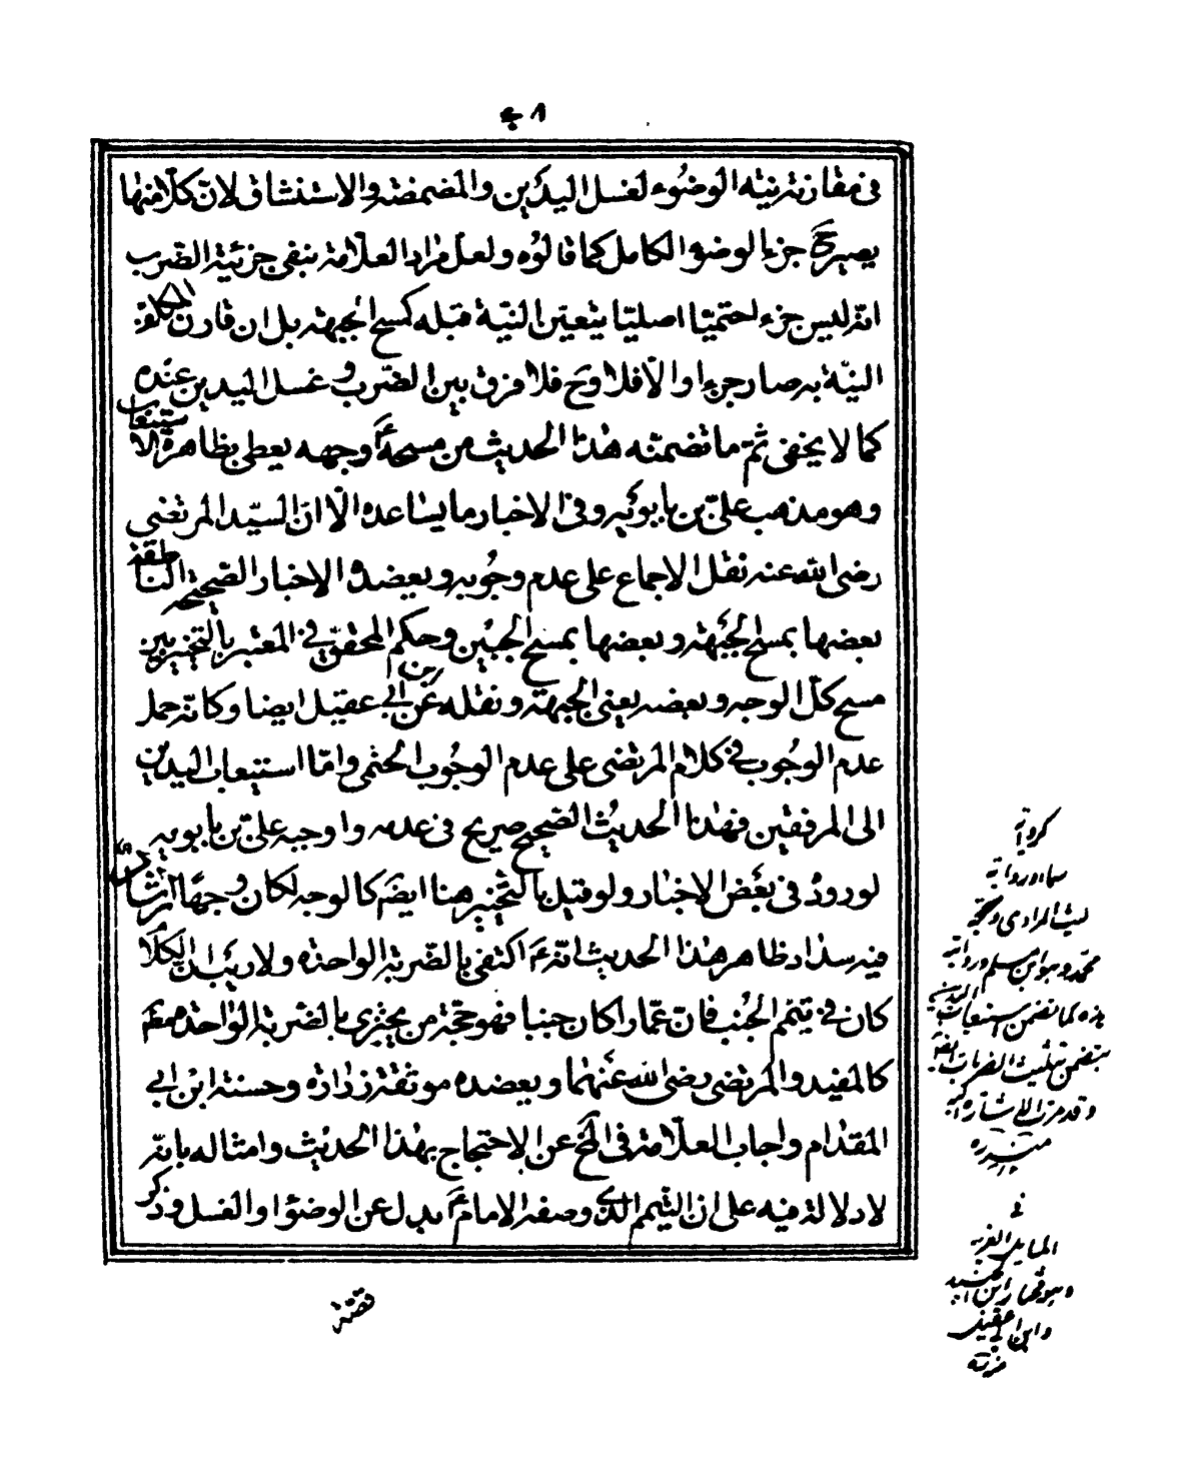 ٨ ب
فى مقارنة نية الوضوء لغسل اليدين والمضمضة والاستنشاق لان كلا منها
يصير ح جزء الوضوء الكامل كما قالوه ولعل مراد العلامة بنفى جزئية الضرب
انه ليس جزء احتميا اصليا يتعين النية قبله كمسح الجبهة بل ان قارن المكلف
النية به صار جزءا والا فلا وح فلا فرق بين الضرب وغسل اليدين عنده
كما لا يخفى ثم ما تضمنه هذا الحديث من مسحه ع وجهه يعطى بظاهره الاستيعاب
وهو مذهب على بن بابويه وفى الاخبار ما يساعده الا ان السيد المرتضى
رضى الله عنه نقل الاجماع على عدم وجوبه ويعضده الاخبار الصحيحة الناطقة
بعضها بمسح الجبهة وبعضها بمسح الجبين وحكم المحقق فى المعتبر بالتخيير بين
مسح كل الوجه وبعضه يعنى الجبهة ونقله عن ابن ابى عقيل ايضا وكانه حمل
عدم الوجوب فى كلام المرتضى على عدم الوجوب الحتمى واما استيعاب اليدين
الى المرفقين فهذا الحديث الصحيح صريح فى عدمه واوجبه على بن بابويه
لوروده فى بعض الاخبار ولو قيل بالتخيير هنا ايضا كالوجه لكان وجها ان لم
فيه سداد ظاهر هذا الحديث انه ع اكتفى بالضربة الواحدة ولا ريب ان الكلام
كان فى تيمم الجنب فان عمارا كان جنبا فهو حجة من يجتزى بالضربة الواحدة مطم
كالمفيد والمرتضى رضى الله عنهما ويعضده موثقة زرارة وحسنة ابن ابى
المقدام واجاب العلامة فى المخ عن الاحتجاج بهذا الحديث وامثاله بانه
لا دلالة فيه على ان التيمم الذى وصفه الامام ع بدل عن الوضوء او الغسل وذكر
قصة
كرواية
سماعة ورواية
ليث المرادى وصحيحة
محمد وهو ابن مسلم ورواية
هذه كما تضمن استيعاب اليدين
يتضمن تثليث الضربات ايضا
وقد مرت الاشارة اليه
منه
فى
المسائل الغرية
وهو مختار ابن الجنيد
وابن ابى عقيل
منه